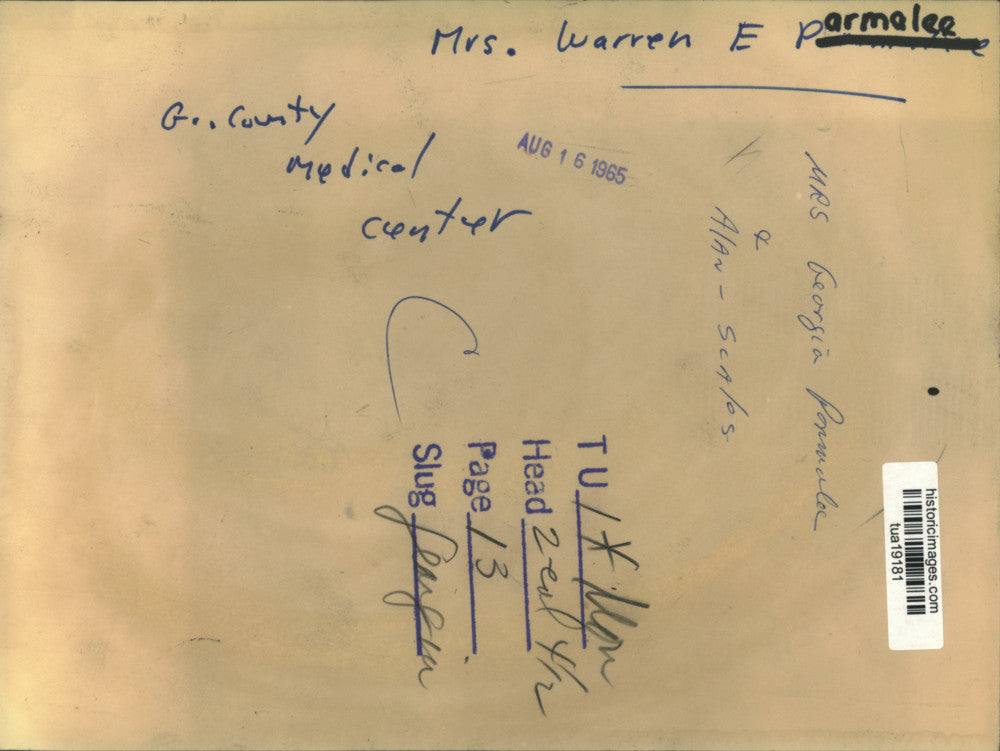 Mrs. Warren E Parmalee
G.. County
Medical
center
AUG 16 1965
MRS Georgia Parmalee
&
Alan - Scales
TU 1 * Mon
Head 2 col 4/2
Page 13
Slug
historicimages.com
tua19181